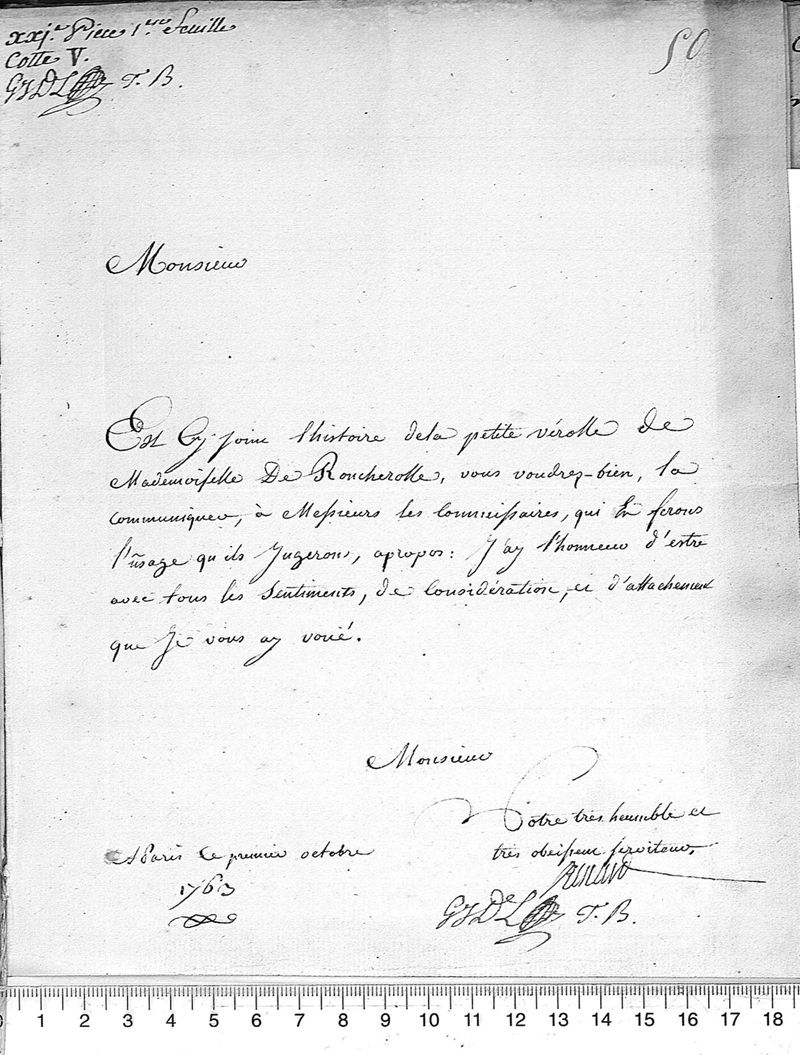 xxj.e Piece 1.ere feuille
Cotte V.
GJDL T. B.
50
Monsieur
Est Cy joint l'histoire dela petite vérolle de
Mademoiselle De Roncherolle, vous voudrez-bien, la
communiquer, à Messieurs les Commissaires, qui En feront
l'usage qu'ils Jugeront, apropos: J'ay l'honneur d'estre
avec tous les Sentiments, de Considération, et d'attachement
que Je vous ay voüé.
Monsieur
Votre très humble et
très obeissent serviteur,
AParis Ce premier octobre
1763
GJDeL T. B.